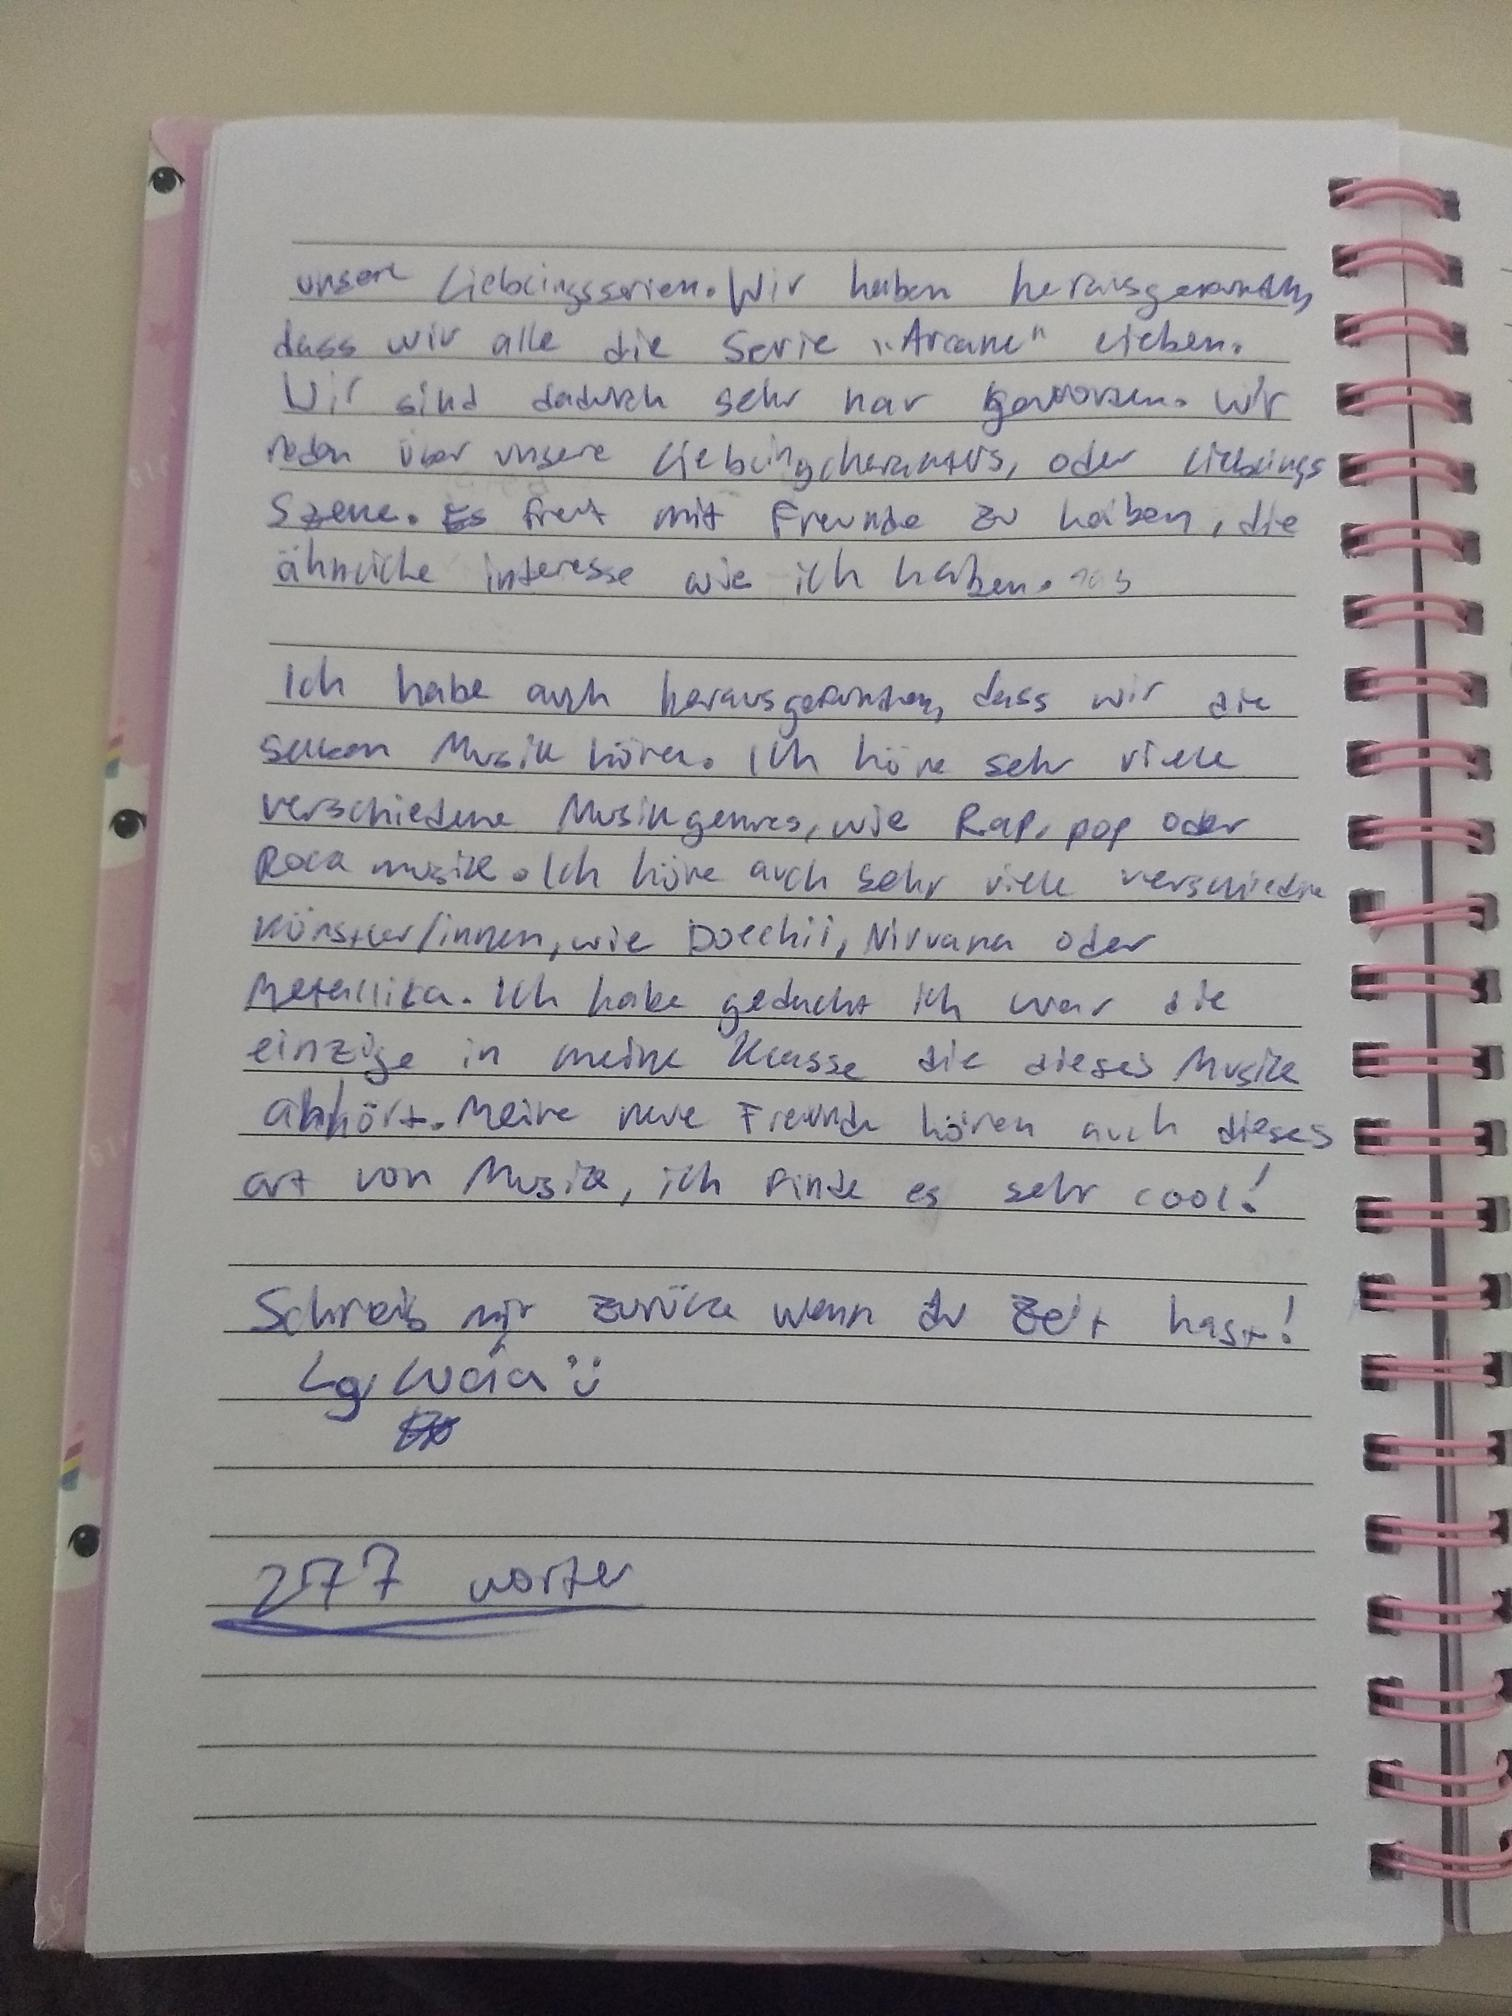 unsere Lieblingsserien. Wir haben herausgefunden,
dass wir alle die Serie "Arcane" lieben.
Wir sind dadurch sehr nar geworden. Wir
reden über unsere Lieblingcharakters, oder Lieblings
Szene. Es freut mit Freunde zu haben, die
ähnliche interesse wie ich haben.
Ich habe auch herausgefunden, dass wir die
selben Musik hören. Ich höre sehr viele
verschiedene Musikgenres, wie Rap, pop oder
Rock musik. Ich höre auch sehr viele verschiedne
Künstler/innen, wie Doechii, Nirvana oder
Metallika. Ich habe gedacht ich war die
einzige in meine Klasse die dieses Musik
abhört. Meine neue Freunde hören auch dieses
art von Musik, ich finde es sehr cool!
Schreib mir zurück wenn du Zeit hast!
Lg, Lucia
277 worter